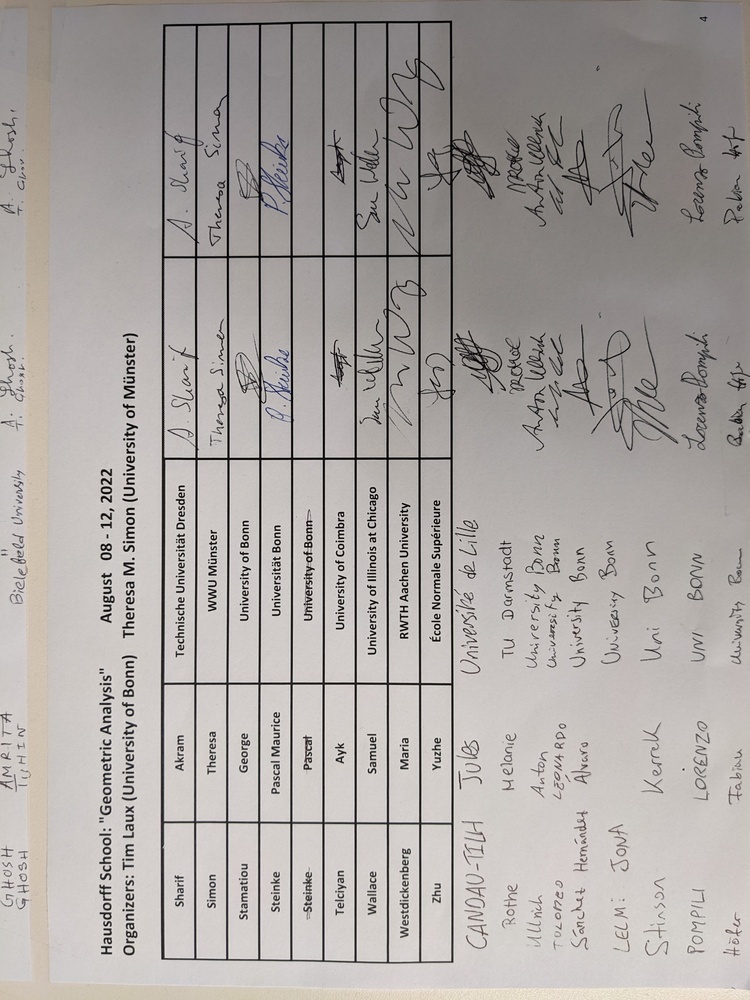 GHOSH AMRITA Bielefeld University A. Ghosh. A. Ghosh.
GHOSH TUHIN " T. Ghosh. T. Ghosh.
Hausdorff School: "Geometric Analysis" August 08 - 12, 2022
Organizers: Tim Laux (University of Bonn) Theresa M. Simon (University of Münster)
Sharif Akram Technische Universität Dresden A. Sharif A. Sharif
Simon Theresa WWU Münster Theresa Simon Theresa Simon
Stamatiou George University of Bonn
Steinke Pascal Maurice Universität Bonn P. Steinke P. Steinke
Steinke Pascal University of Bonn
Telciyan Ayk University of Coimbra
Wallace Samuel University of Illinois at Chicago
Westdickenberg Maria RWTH Aachen University
Zhu Yuzhe École Normale Supérieure
CANDAU-TILH JULES Université de Lille
Rothe Melanie TU Darmstadt MRothe MRothe
Ullrich Anton University Bonn Anton Ullrich Anton Ullrich
TOLOMEO LEONARDO University Bonn
Sánchez Hernández Álvaro University Bonn
LELMI JONA University Bonn
Stinson Kerrek Uni Bonn
POMPILI LORENZO UNI BONN Lorenzo Pompili Lorenzo Pompili
Höfer Fabian University Bonn Fabian Höfer Fabian Höfer
4